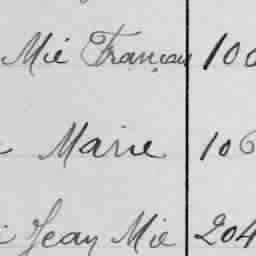 Mie Français 100
Marie 106
Jean Mie 204